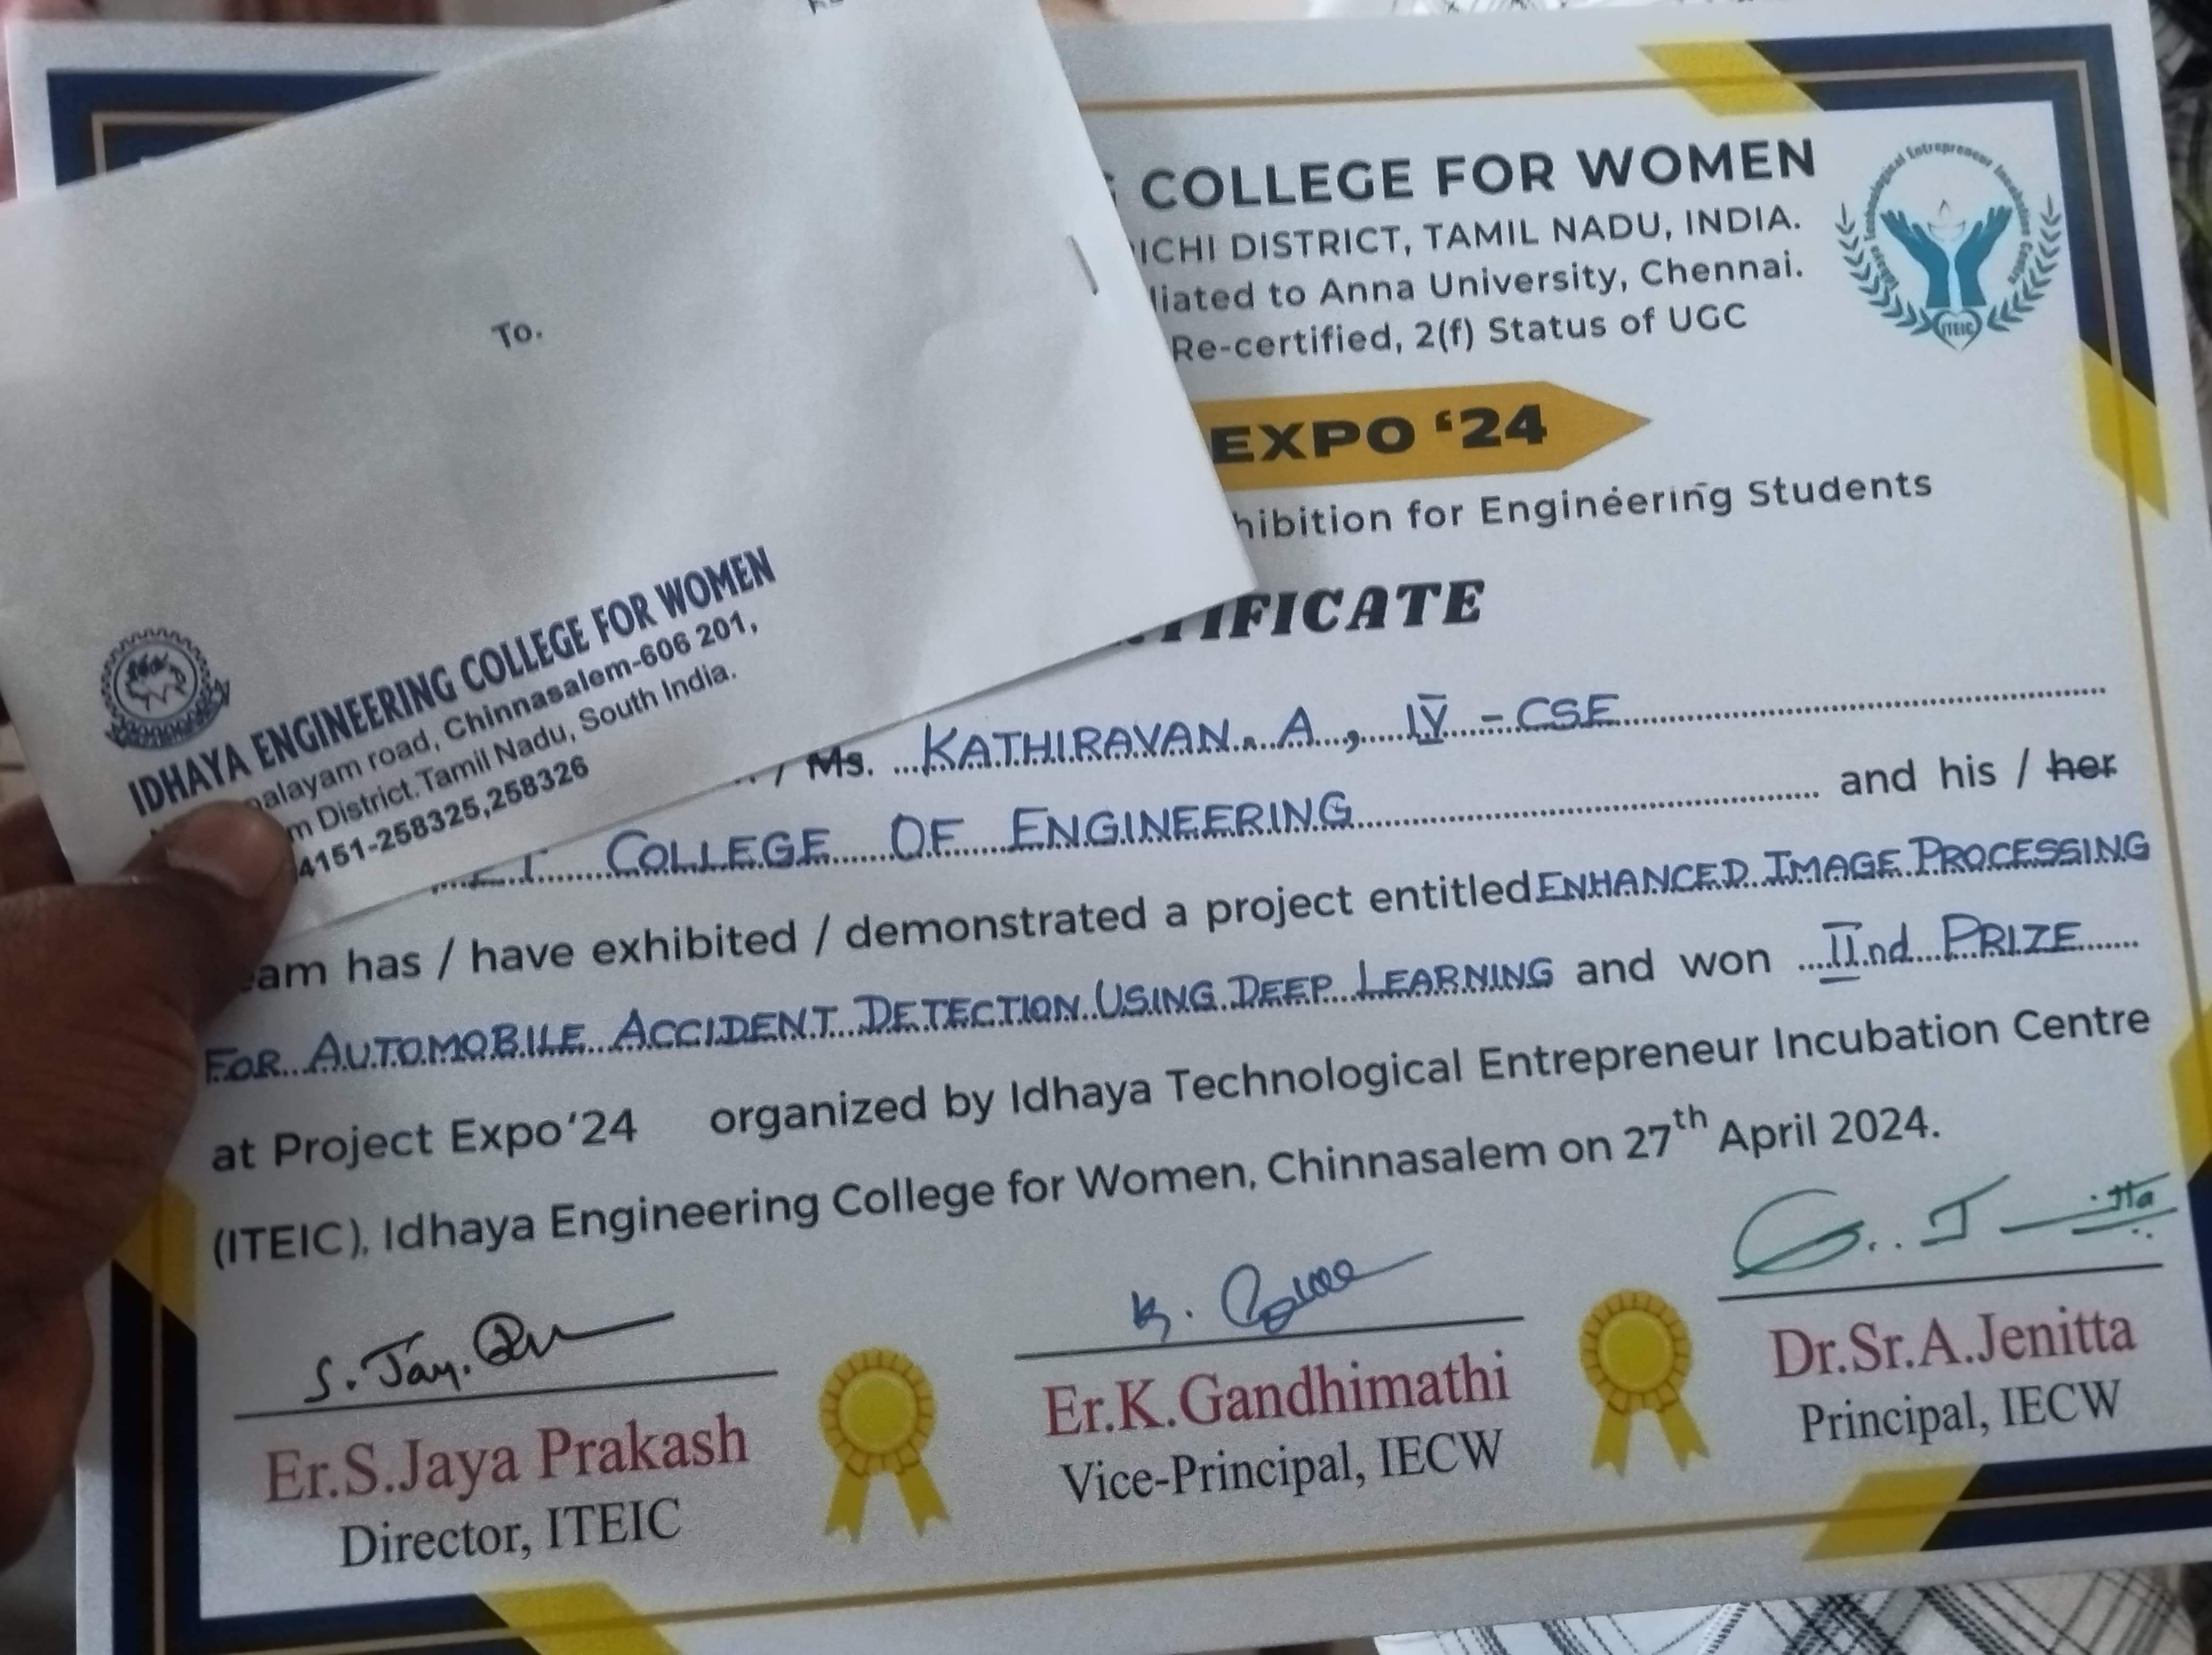 To.
IDHAYA ENGINEERING COLLEGE FOR WOMEN
alayam road, Chinnasalem-606 201,
m District. Tamil Nadu, South India.
4151-258325,258326
COLLEGE FOR WOMEN
ICHI DISTRICT, TAMIL NADU, INDIA.
liated to Anna University, Chennai.
Re-certified, 2(f) Status of UGC
Technological Entrepreneur Incubation Centre
ITEIC
EXPO ‘24
hibition for Engineering Students
TIFICATE
/ Ms. KATHIRAVAN. A, IV - CSE
E.T. COLLEGE OF ENGINEERING and his / her
am has / have exhibited / demonstrated a project entitled ENHANCED IMAGE PROCESSING
FOR AUTOMOBILE ACCIDENT DETECTION USING DEEP LEARNING and won IInd PRIZE
at Project Expo‘24 organized by Idhaya Technological Entrepreneur Incubation Centre
(ITEIC), Idhaya Engineering College for Women, Chinnasalem on 27th April 2024.
S. Jay. 
Er.S.Jaya Prakash
Director, ITEIC
Er.K.Gandhimathi
Vice-Principal, IECW
Dr.Sr.A.Jenitta
Principal, IECW